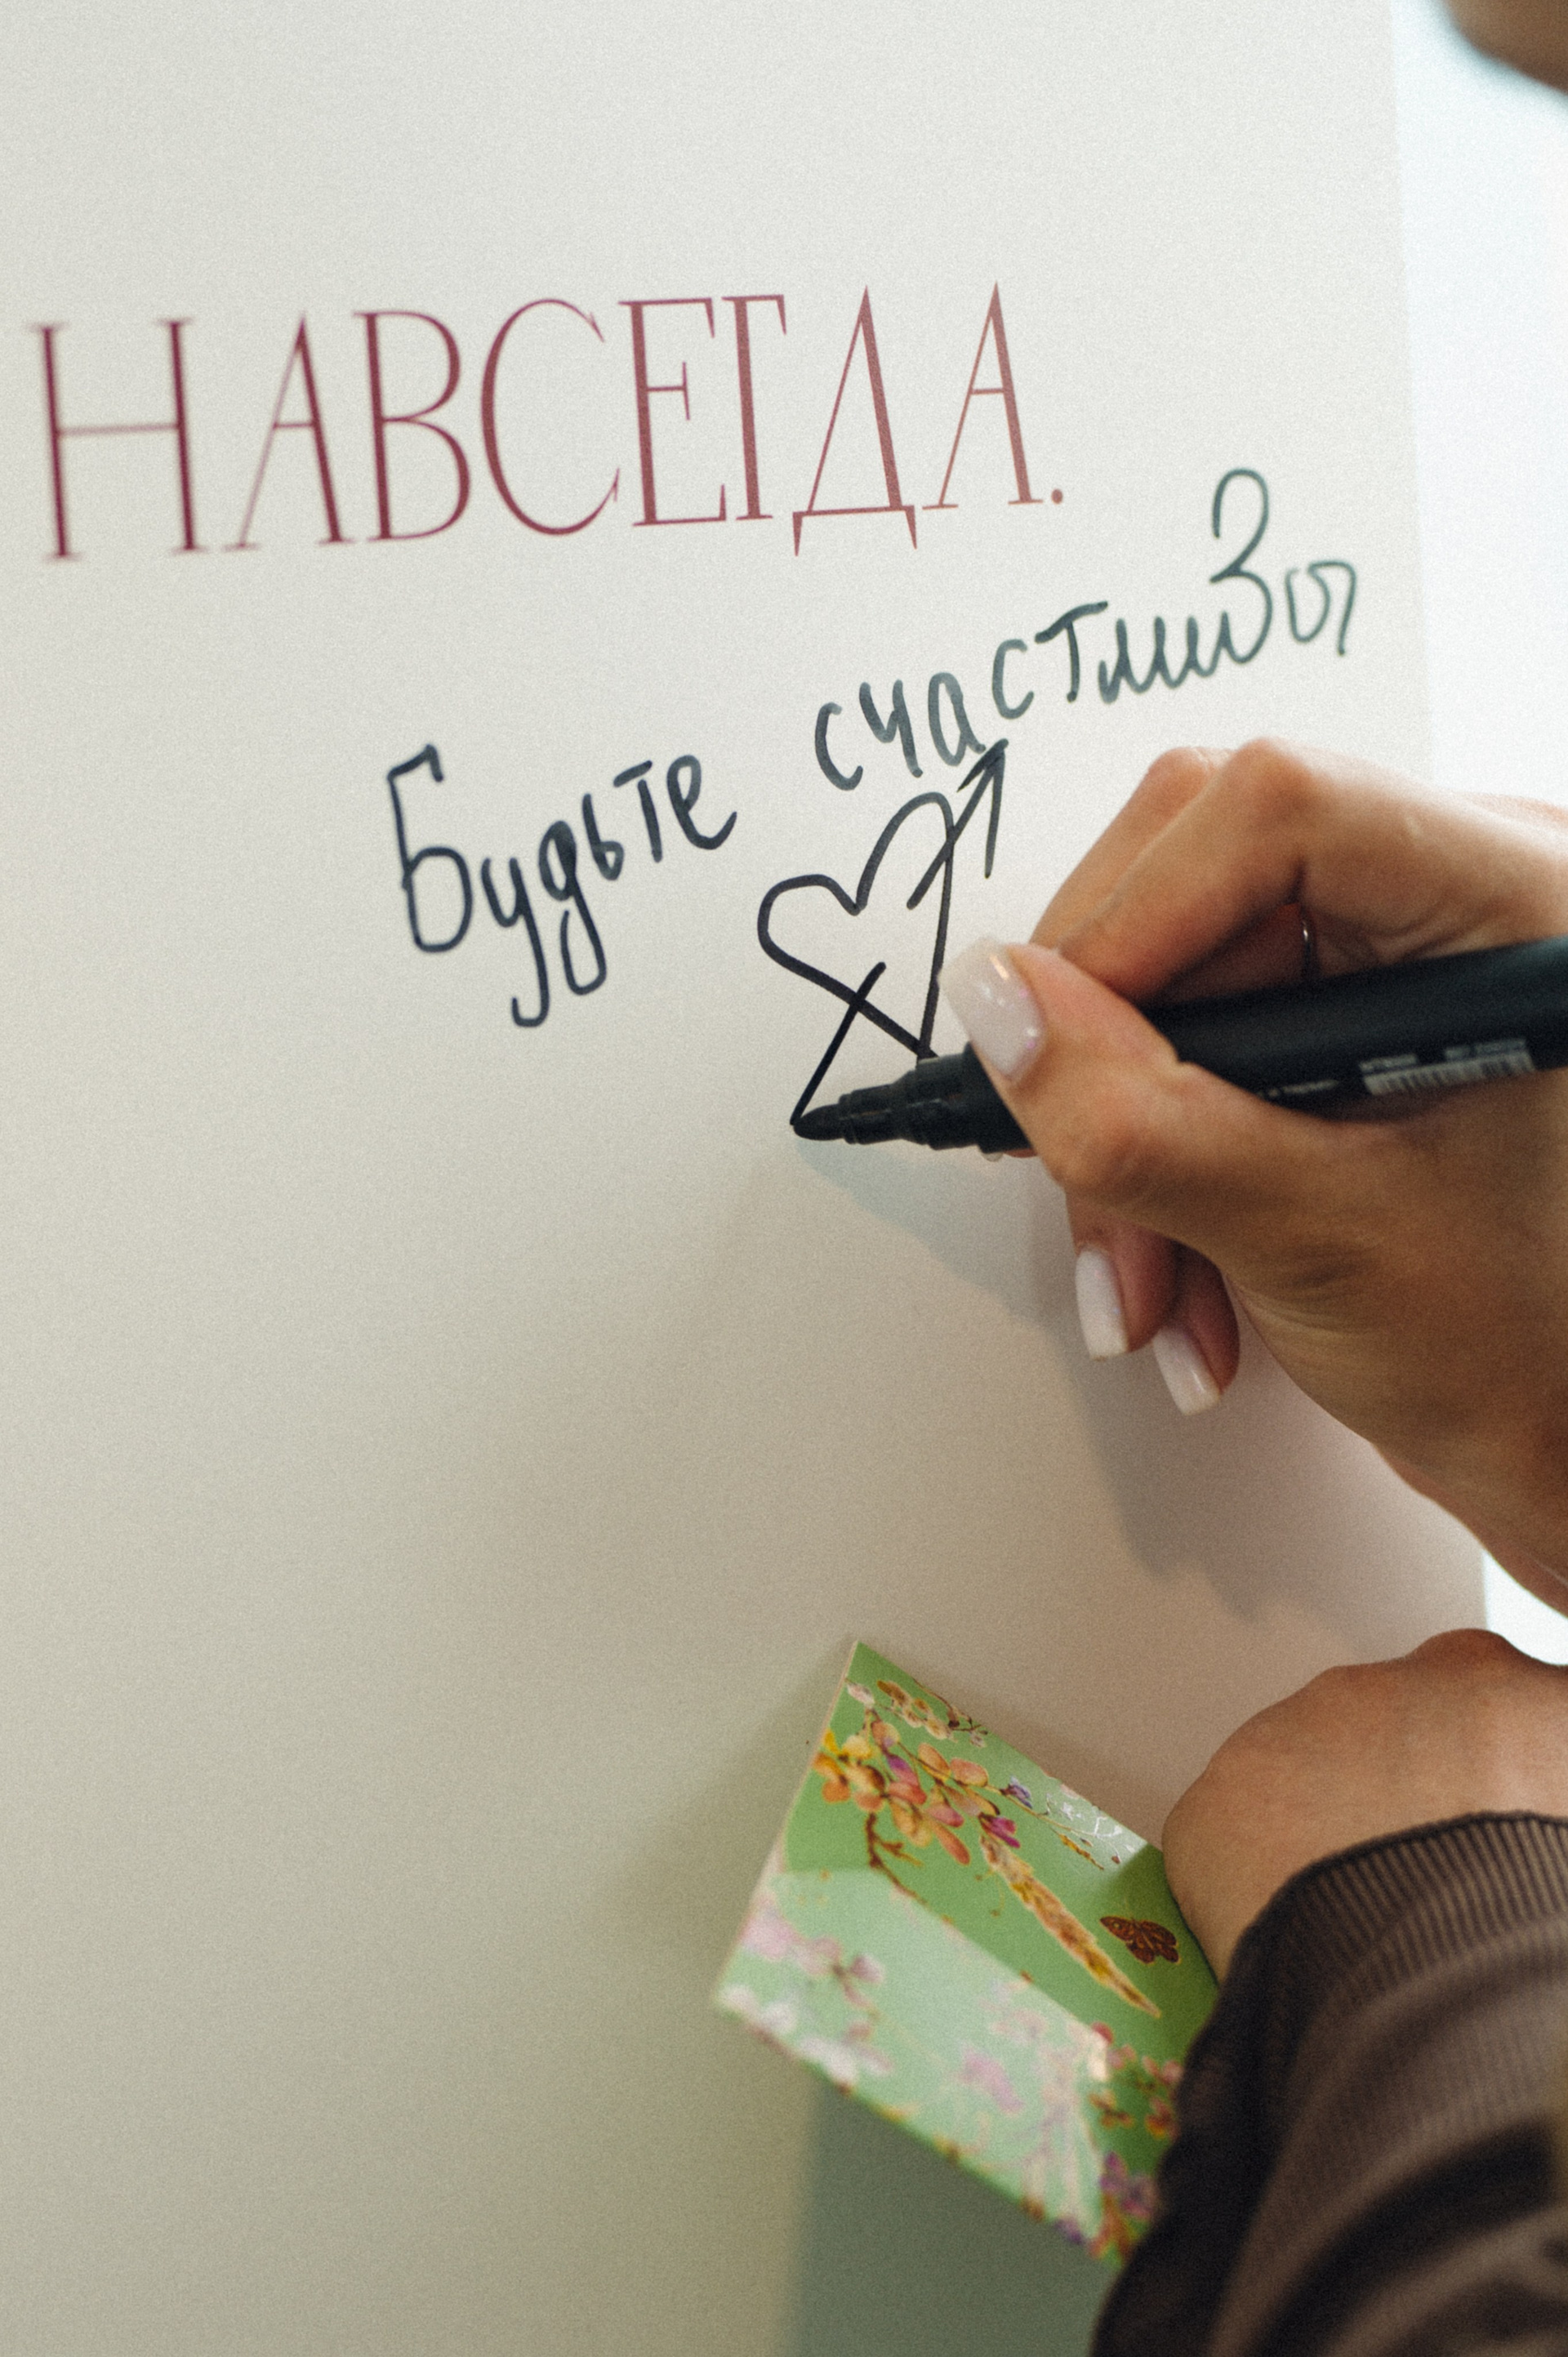 НАВСЕГДА.
Будьте счастливы